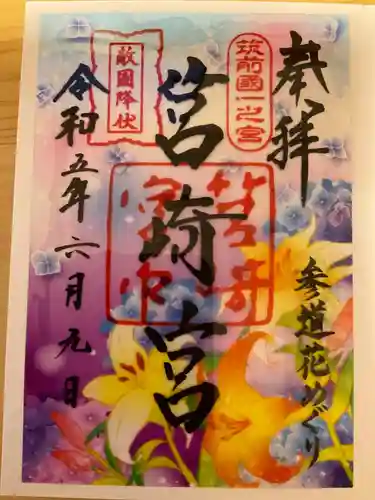 奉拝
参道花めぐり
筑前國一之宮
筥崎宮
筥崎宮印
敵國降伏
令和五年六月元日